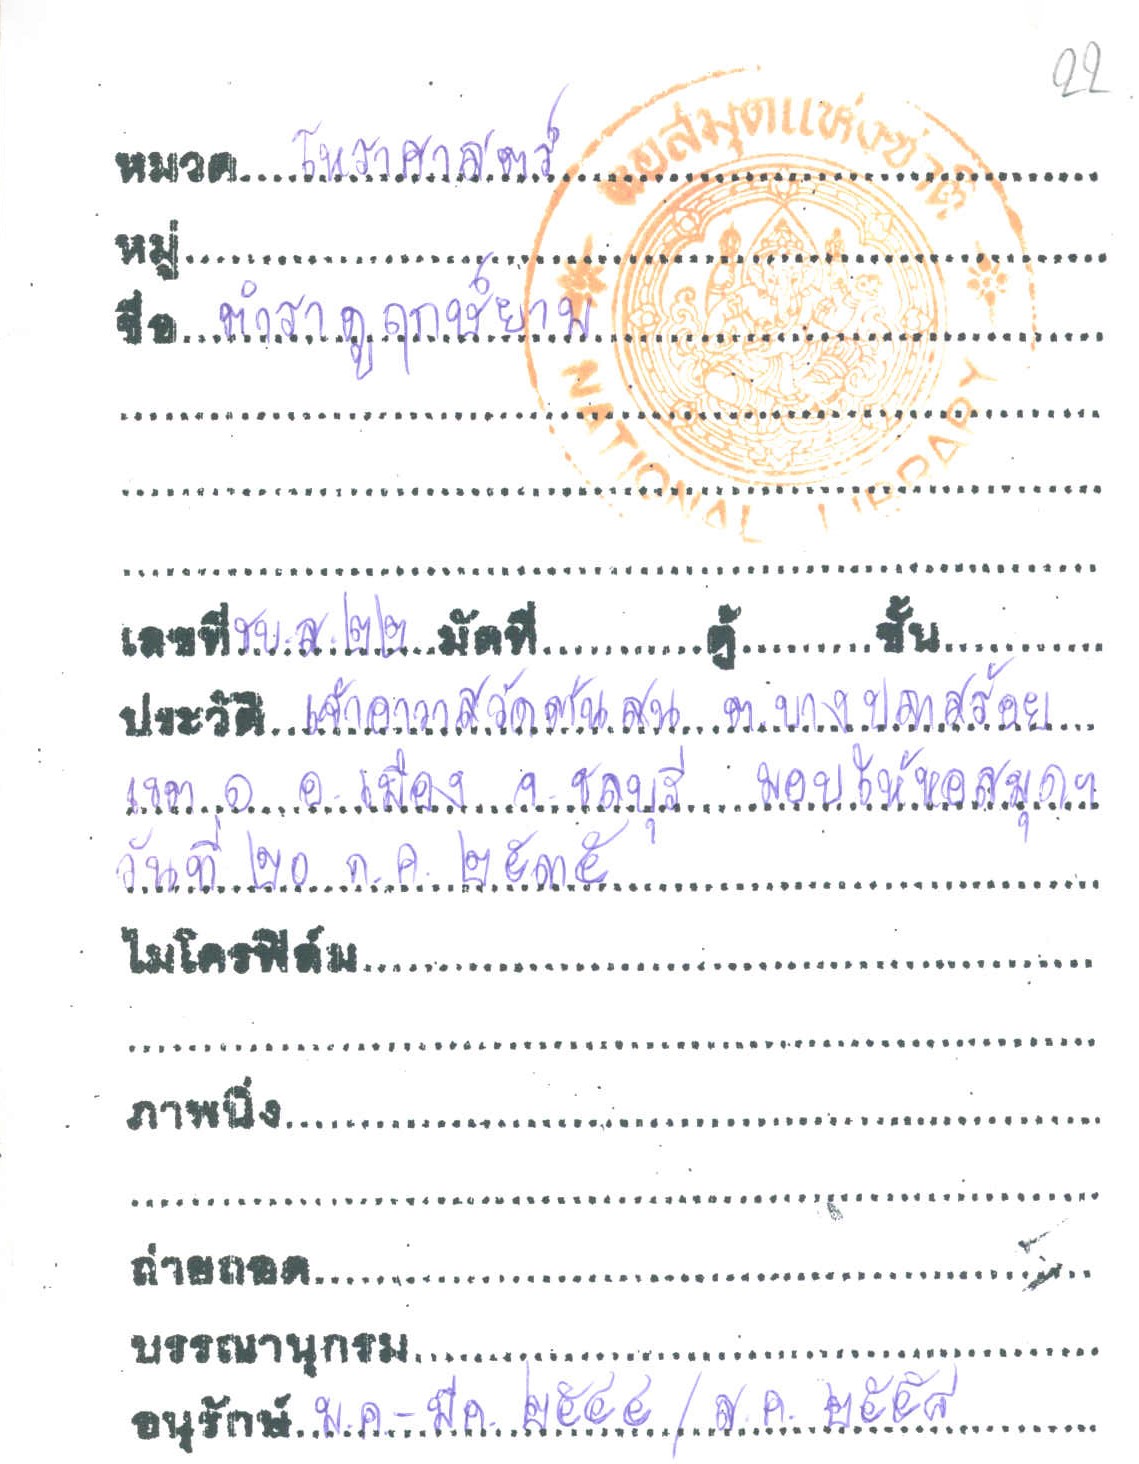 22
หอสมุดแห่งชาติ
หมวด โหราศาสตร์
หมู่
ชื่อ ตำราดูฤกษ์ยาม
NATIONAL LIBRARY
เลขที่ ชบ.ส.๒๒ มัดที่ ตู้ ชั้น
ประวัติ เจ้าอาวาสวัดต้นสน ต.บางปลาสร้อย
เขต ๑ อ.เมือง จ.ชลบุรี มอบให้หอสมุดฯ
วันที่ ๒๐ ก.ค. ๒๕๓๕
ไมโครฟิล์ม
ภาพนิ่ง
ถ่ายถอด
บรรณานุกรม
อนุรักษ์ ม.ค.-มี.ค. ๒๕๔๔ / ส.ค. ๒๕๕๘